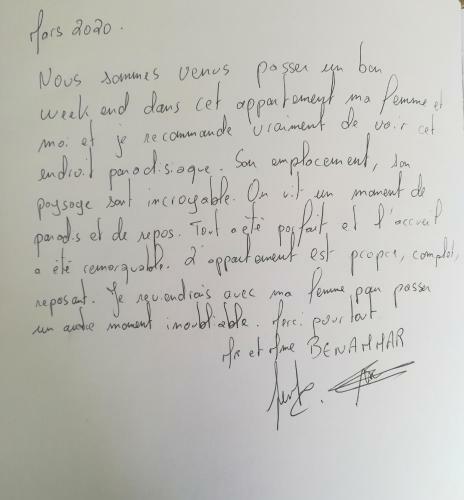 Mars 2020.
Nous sommes venus passer un bon
week end dans cet appartement ma femme et
moi et je recommande vraiment de voir cet
endroit paradisiaque. Son emplacement, son
paysage sont incroyable. On vit un moment de
paradis et de repos. Tout a été parfait et l'accueil
a été remarquable. L'appartement est propre, complet,
reposant. Je reviendrais avec ma femme pour passer
un autre moment inoubliable. Merci pour tout
Mr et Mme BENAMMAR